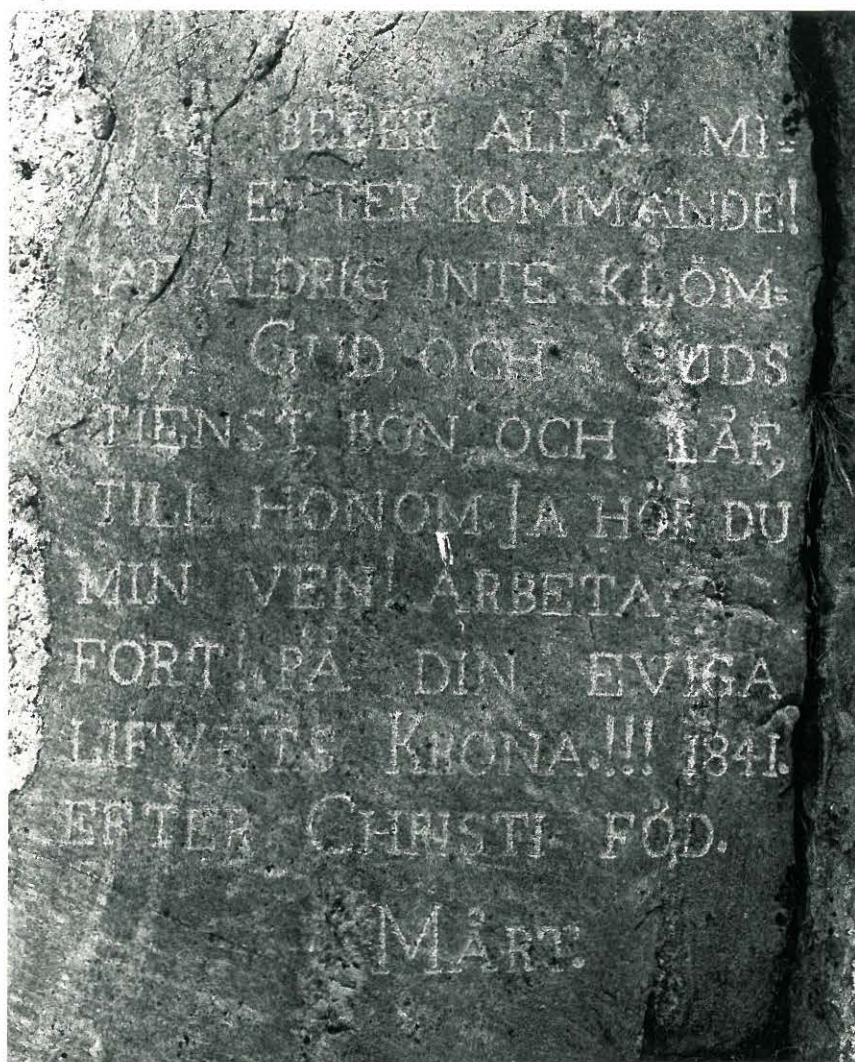 JAG BEDER ALLA! MI-
NA EFTER KOMMANDE!
AT ALDRIG INTE KLÖM-
MA GUD, OCH GUDS
TIENST, BÖN, OCH LÅF,
TILL HONOM. JA HÖR DU
MIN VEN! ARBETA
FORT! PÅ DIN EVIGA
LIFVETS KRONA.!!! 1841.
EFTER CHRISTI FÖD.
MÅRT.